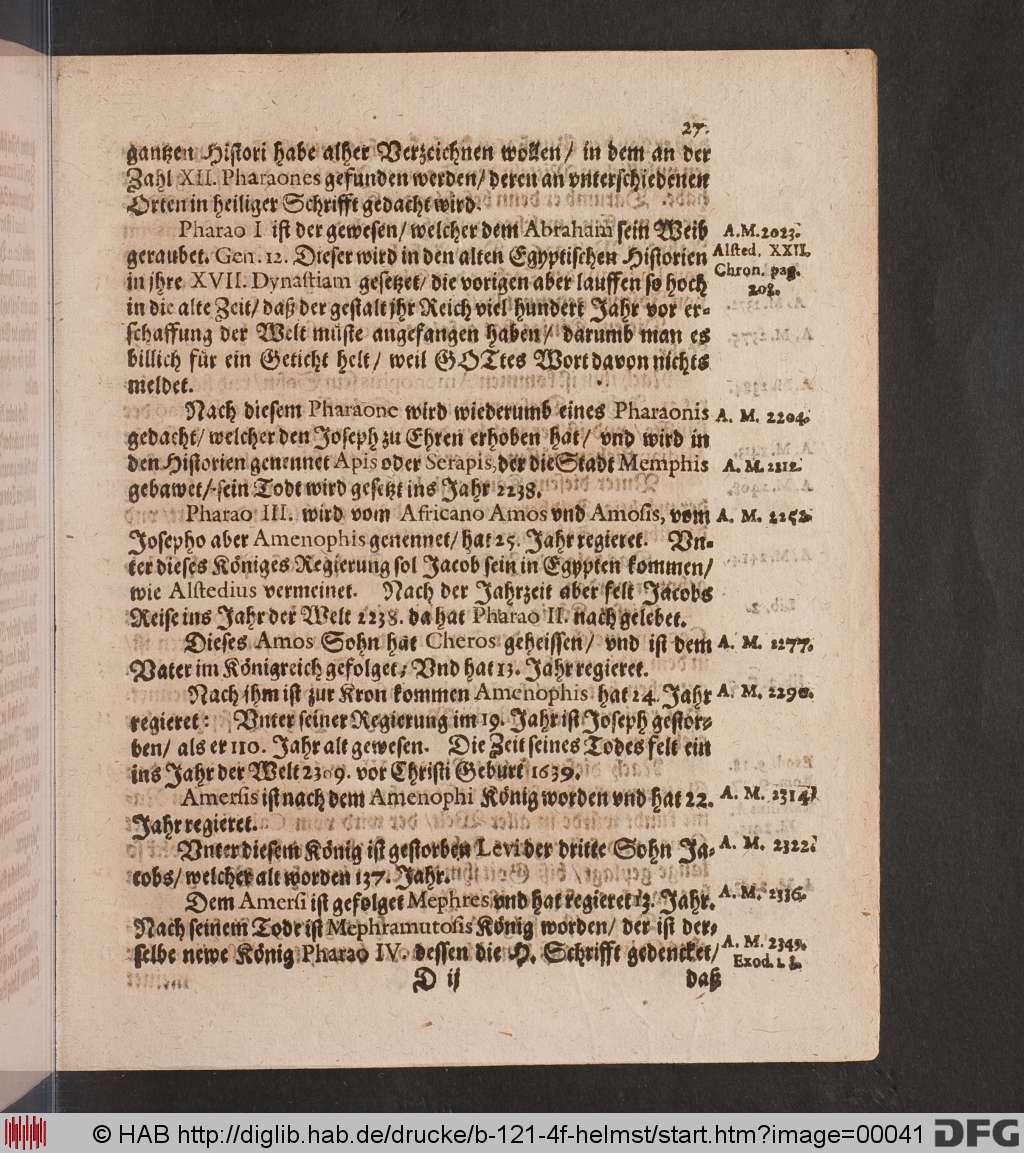 27.
gantzen Histori habe alher Verzeichnen wollen/ in dem an der
Zahl XII. Pharaones gefunden werden/ deren an vnterschiedenen
Orten in heiliger Schrifft gedacht wird.
Pharao I ist der gewesen/ welcher dem Abraham sein Weib
A.M. 2023.
geraubet. Gen. 12. Dieser wird in den alten Egyptischen Historien
Alsted. XXII.
in jhre XVII. Dynastiam gesetzet/ die vorigen aber lauffen so hoch
Chron. pag.
203.
in die alte Zeit/ daß der gestalt jhr Reich viel hundert Jahr vor er-
schaffung der Welt müste angefangen haben/ darumb man es
billich für ein Geticht helt/ weil GOTtes Wort davon nichts
meldet.
Nach diesem Pharaone wird wiederumb eines Pharaonis
A. M. 2204.
gedacht/ welcher den Joseph zu Ehren erhoben hat/ vnd wird in
den Historien genennet Apis oder Serapis, der die Stadt Memphis
A. M. 2212.
gebawet/ sein Todt wird gesetzt ins Jahr 2238.
Pharao III. wird vom Africano Amos vnd Amosis, vom
A. M. 2252.
Josepho aber Amenophis genennet/ hat 25. Jahr regieret. Vn-
ter dieses Königes Regierung sol Jacob sein in Egypten kommen/
wie Alstedius vermeinet. Nach der Jahrzeit aber felt Jacobs
Reise ins Jahr der Welt 2238. da hat Pharao II. nach gelebet.
Dieses Amos Sohn hat Cheros geheissen/ vnd ist dem
A. M. 2277.
Vater im Königreich gefolget/ Vnd hat 13. Jahr regieret.
Nach jhm ist zur Kron kommen Amenophis hat 24. Jahr
A. M. 2290.
regieret: Vnter seiner Regierung im 19. Jahr ist Joseph gestor-
ben/ als er 110. Jahr alt gewesen. Die Zeit seines Todes felt ein
ins Jahr der Welt 2309. vor Christi Geburt 1639.
Amersis ist nach dem Amenophi König worden vnd hat 22.
A. M. 2314.
Jahr regieret.
Vnter diesem König ist gestorben Levi der dritte Sohn Ja-
A. M. 2322.
cobs/ welcher alt worden 137. Jahr.
Dem Amersi ist gefolget Mephres vnd hat regieret 13. Jahr.
A. M. 2336.
Nach seinem Todt ist Mephramutosis König worden/ der ist der-
selbe newe König Pharao IV. dessen die H. Schrifft gedencket/
A. M. 2349.
Exod. 1. 8.
D ij
daß
© HAB http://diglib.hab.de/drucke/b-121-4f-helmst/start.htm?image=00041
DFG